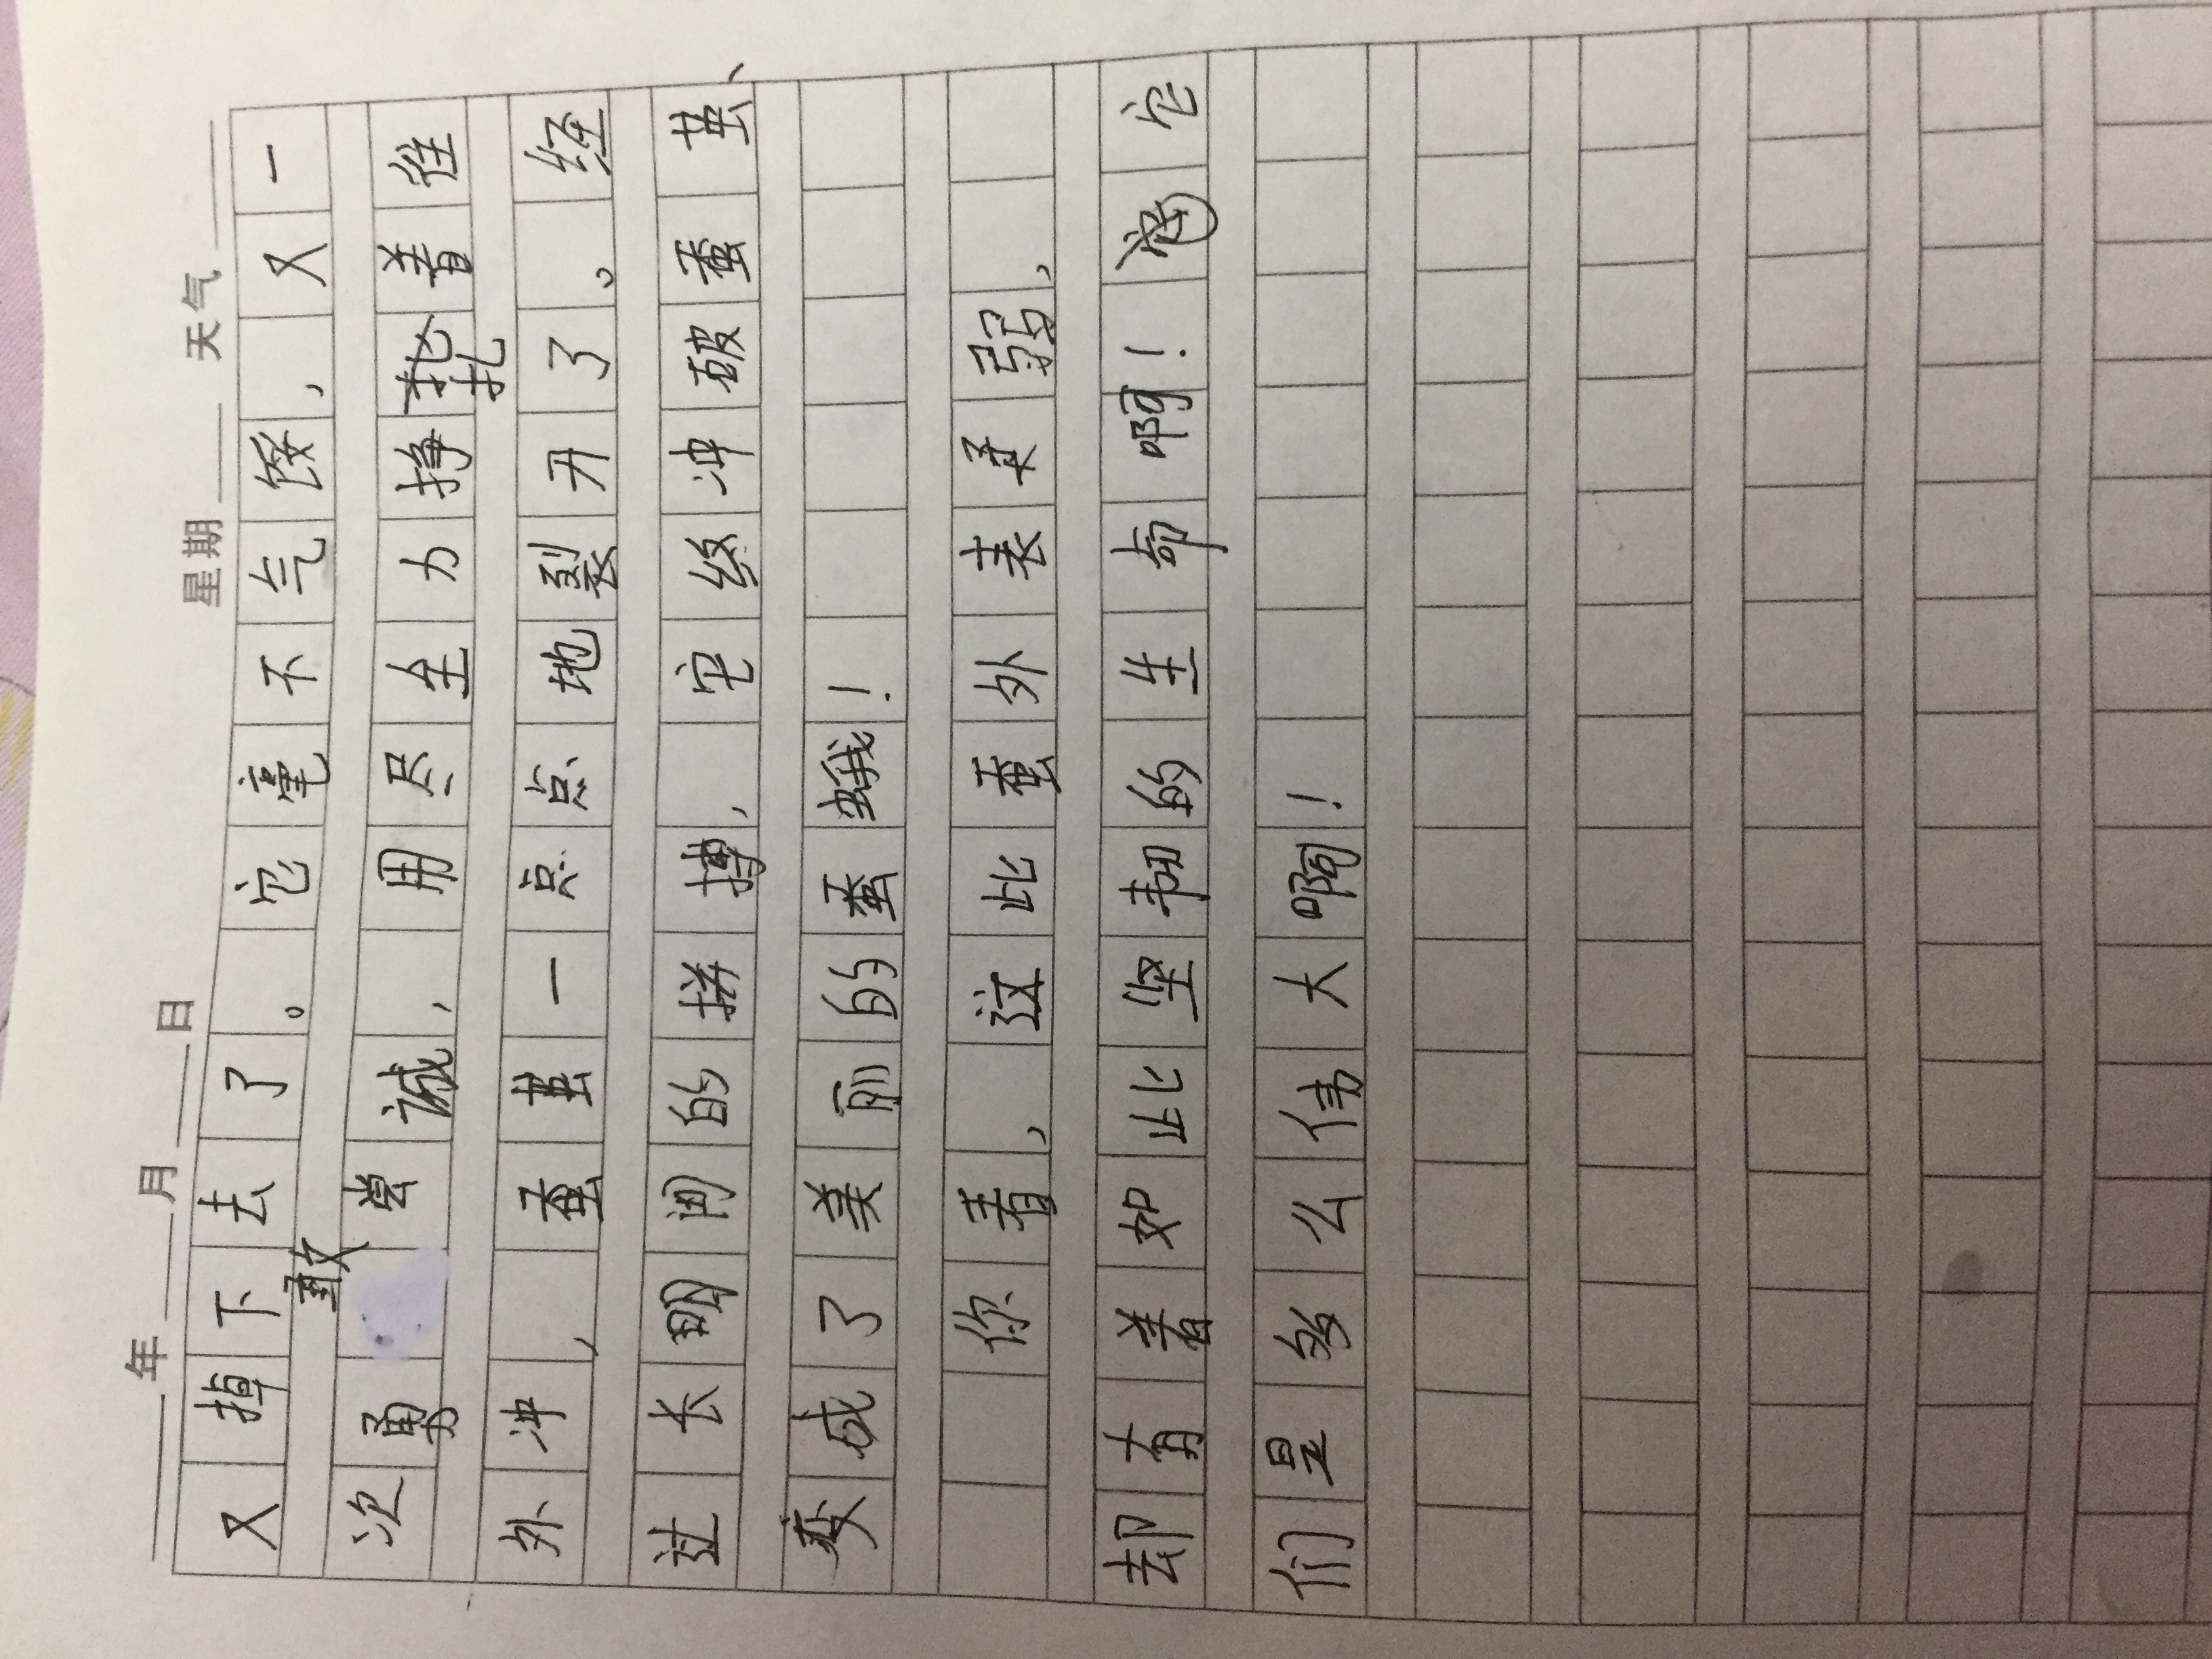 年 月 日 星期 天气
又掉下去了。它毫不气馁,又一
次勇敢尝诚,用尽全力挣扎着往
外冲,蚕茧一点点地裂开了。经
过长间的拼搏,它终冲破蚕茧、
变成了美丽的蚕蛾!
你看,这比蚕外表柔弱,
却有着如此坚韧的生命啊!它
们是多么伟大啊!